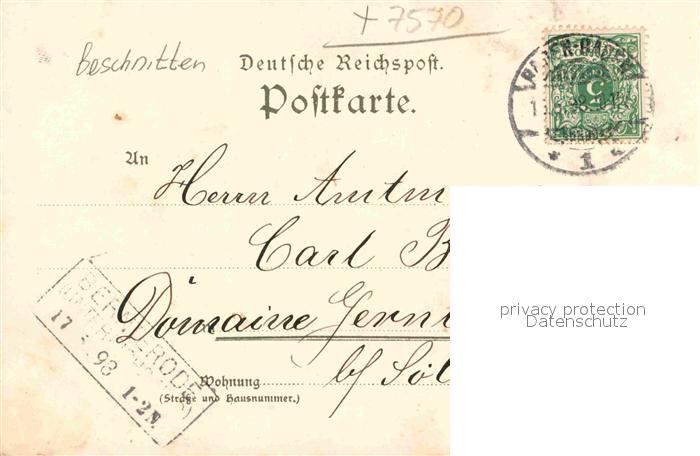 + 7570
beschnitten
Deutsche Reichspost.
Postkarte.
BADEN-BADEN
* 1 *
An
Herrn Amtm
Carl B
Domaine Gern
bf Sol
Wohnung
(Straße und Hausnummer.)
17 98 1-2N.
privacy protection
Datenschutz